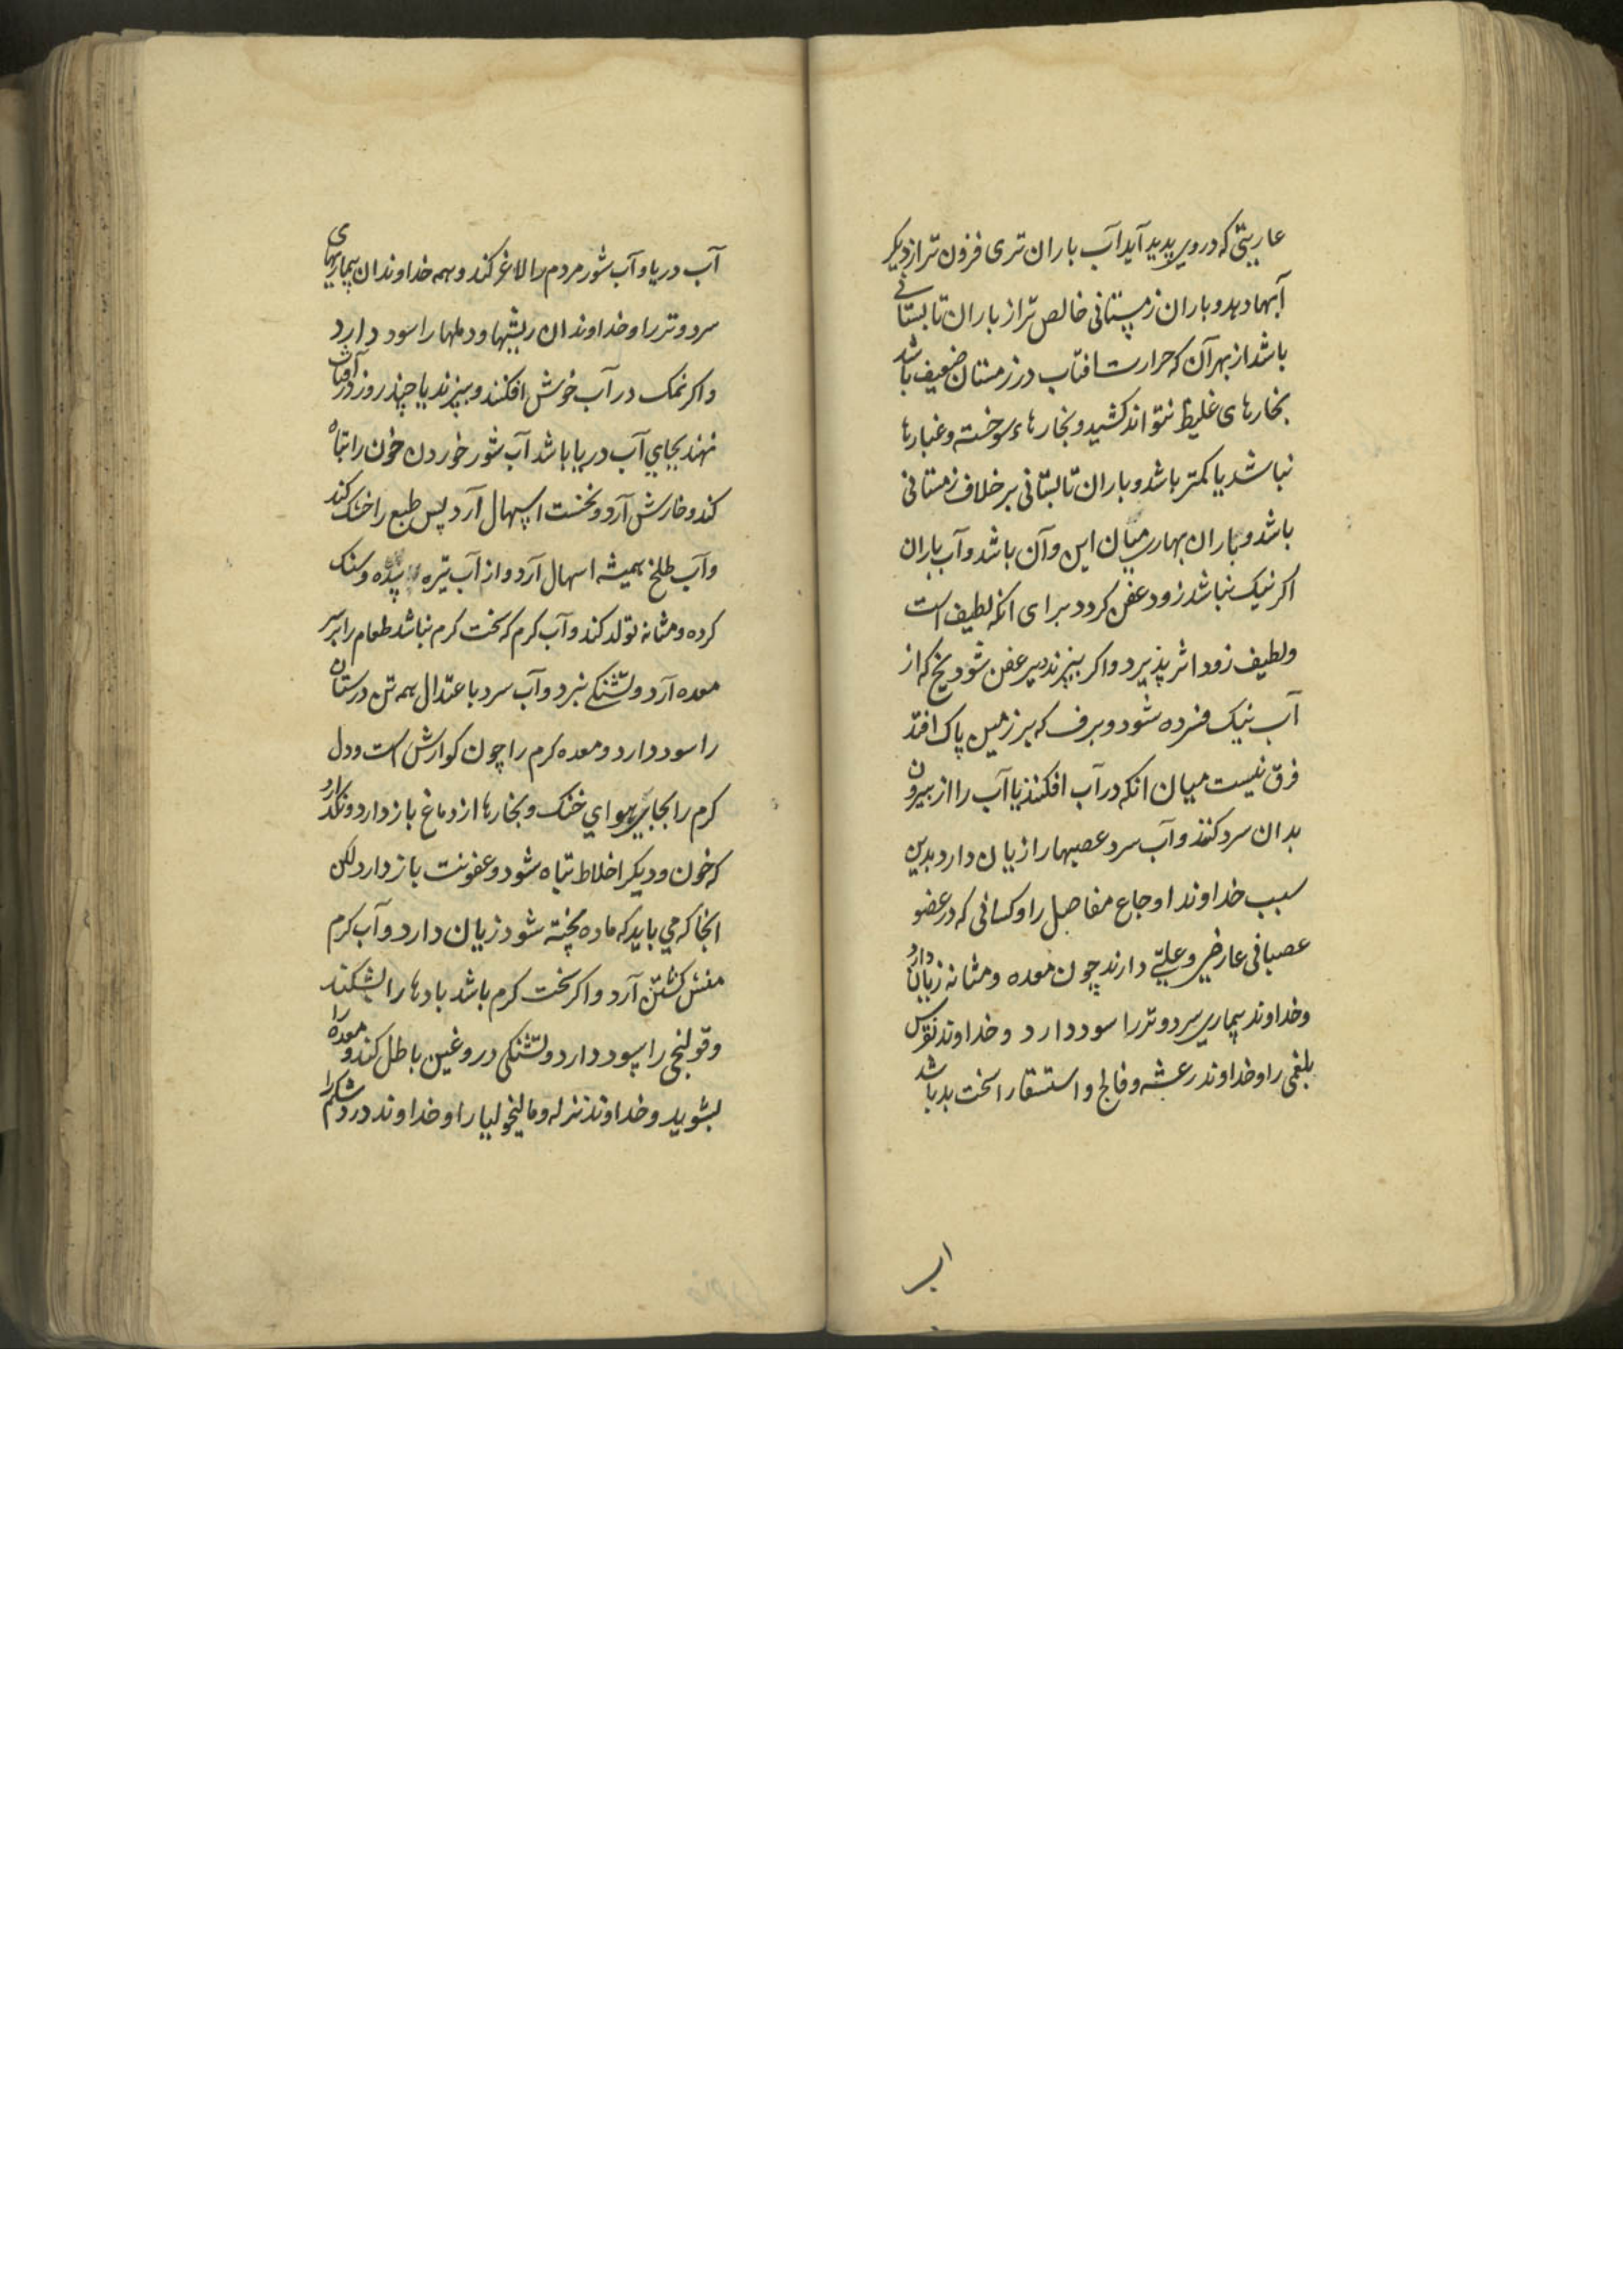 عاریتی که در وی پدید آید آب باران تری فزون تر از دیکر
آبها دهد و باران زمستانی خالص تر از باران تابستانی
باشد از بهر آن که حرارت افتاب در زمستان ضعیف باشد
بخارهای غلیظ نتواند کشید و بخارهاء سوخته و غبارها
نباشد یا کمتر باشد و باران تابستانی بر خلاف زمستانی
باشد و باران بهاری میان این و آن باشد و آب باران
اکر نیک نباشد زود عفن کردد برای انکه لطیف است
و لطیف زود اثر پذیرد و اکر بپزند دیر عفن شود یخ که از
آب نیک فسرده شود و برف که بر زمین پاک افتد
فرق نیست میان انکه در آب افکنند یا آب را از بیرون
بدان سرد کنند و آب سرد عصبها را زیان دارد بدین
سبب خداوند اوجاع مفاصل را و کسانی که در عضو
عصبانی عارضی و علتی دارند چون معده و مثانه زیان دارد
و خداوند بیماری سرد و تر را سود دارد و خداوند نقرس
بلغمی را و خداوند رعشه و فالج و استسقا را سخت بد باشد
اب
آب دریا و آب شور مردم را لاغر کند و همه خداوندان بیماریهای
سرد و تر را و خداوندان ریشها و دملها را سود دارد
و اکر نمک در آب خوش افکنند و بپزند یا چند روز در آفتاب
نهند بجای آب دریا باشد آب شور خوردن خون را تباه
کند و خارش آرد و نخست اسهال آرد پس طبع را خشک کند
و آب طلخ همیشه اسهال آرد و از آب تیره سده و سنک
کرده و مثانه تولد کند و آب کرم که سخت کرم نباشد طعام را بر سر
معده آرد و تشنکی نبرد و آب سرد باعتدال همه تن درستان
را سود دارد و معده کرم را چون کوارش است و دل
کرم را بجای هوای خنک و بخارها از دماغ باز دارد و نکذارد
که خون و دیکر اخلاط تباه شود و عفونت باز دارد لکن
انجا که می باید که ماده پخته شود زیان دارد و آب کرم
منش کشتن آرد و اکر سخت کرم باشد بادها را بشکند
و قولنجی را سود دارد و تشنکی دروغین باطل کند و معده را
بشوید و خداوند نزله و مالیخولیا را و خداوند درد شکم را